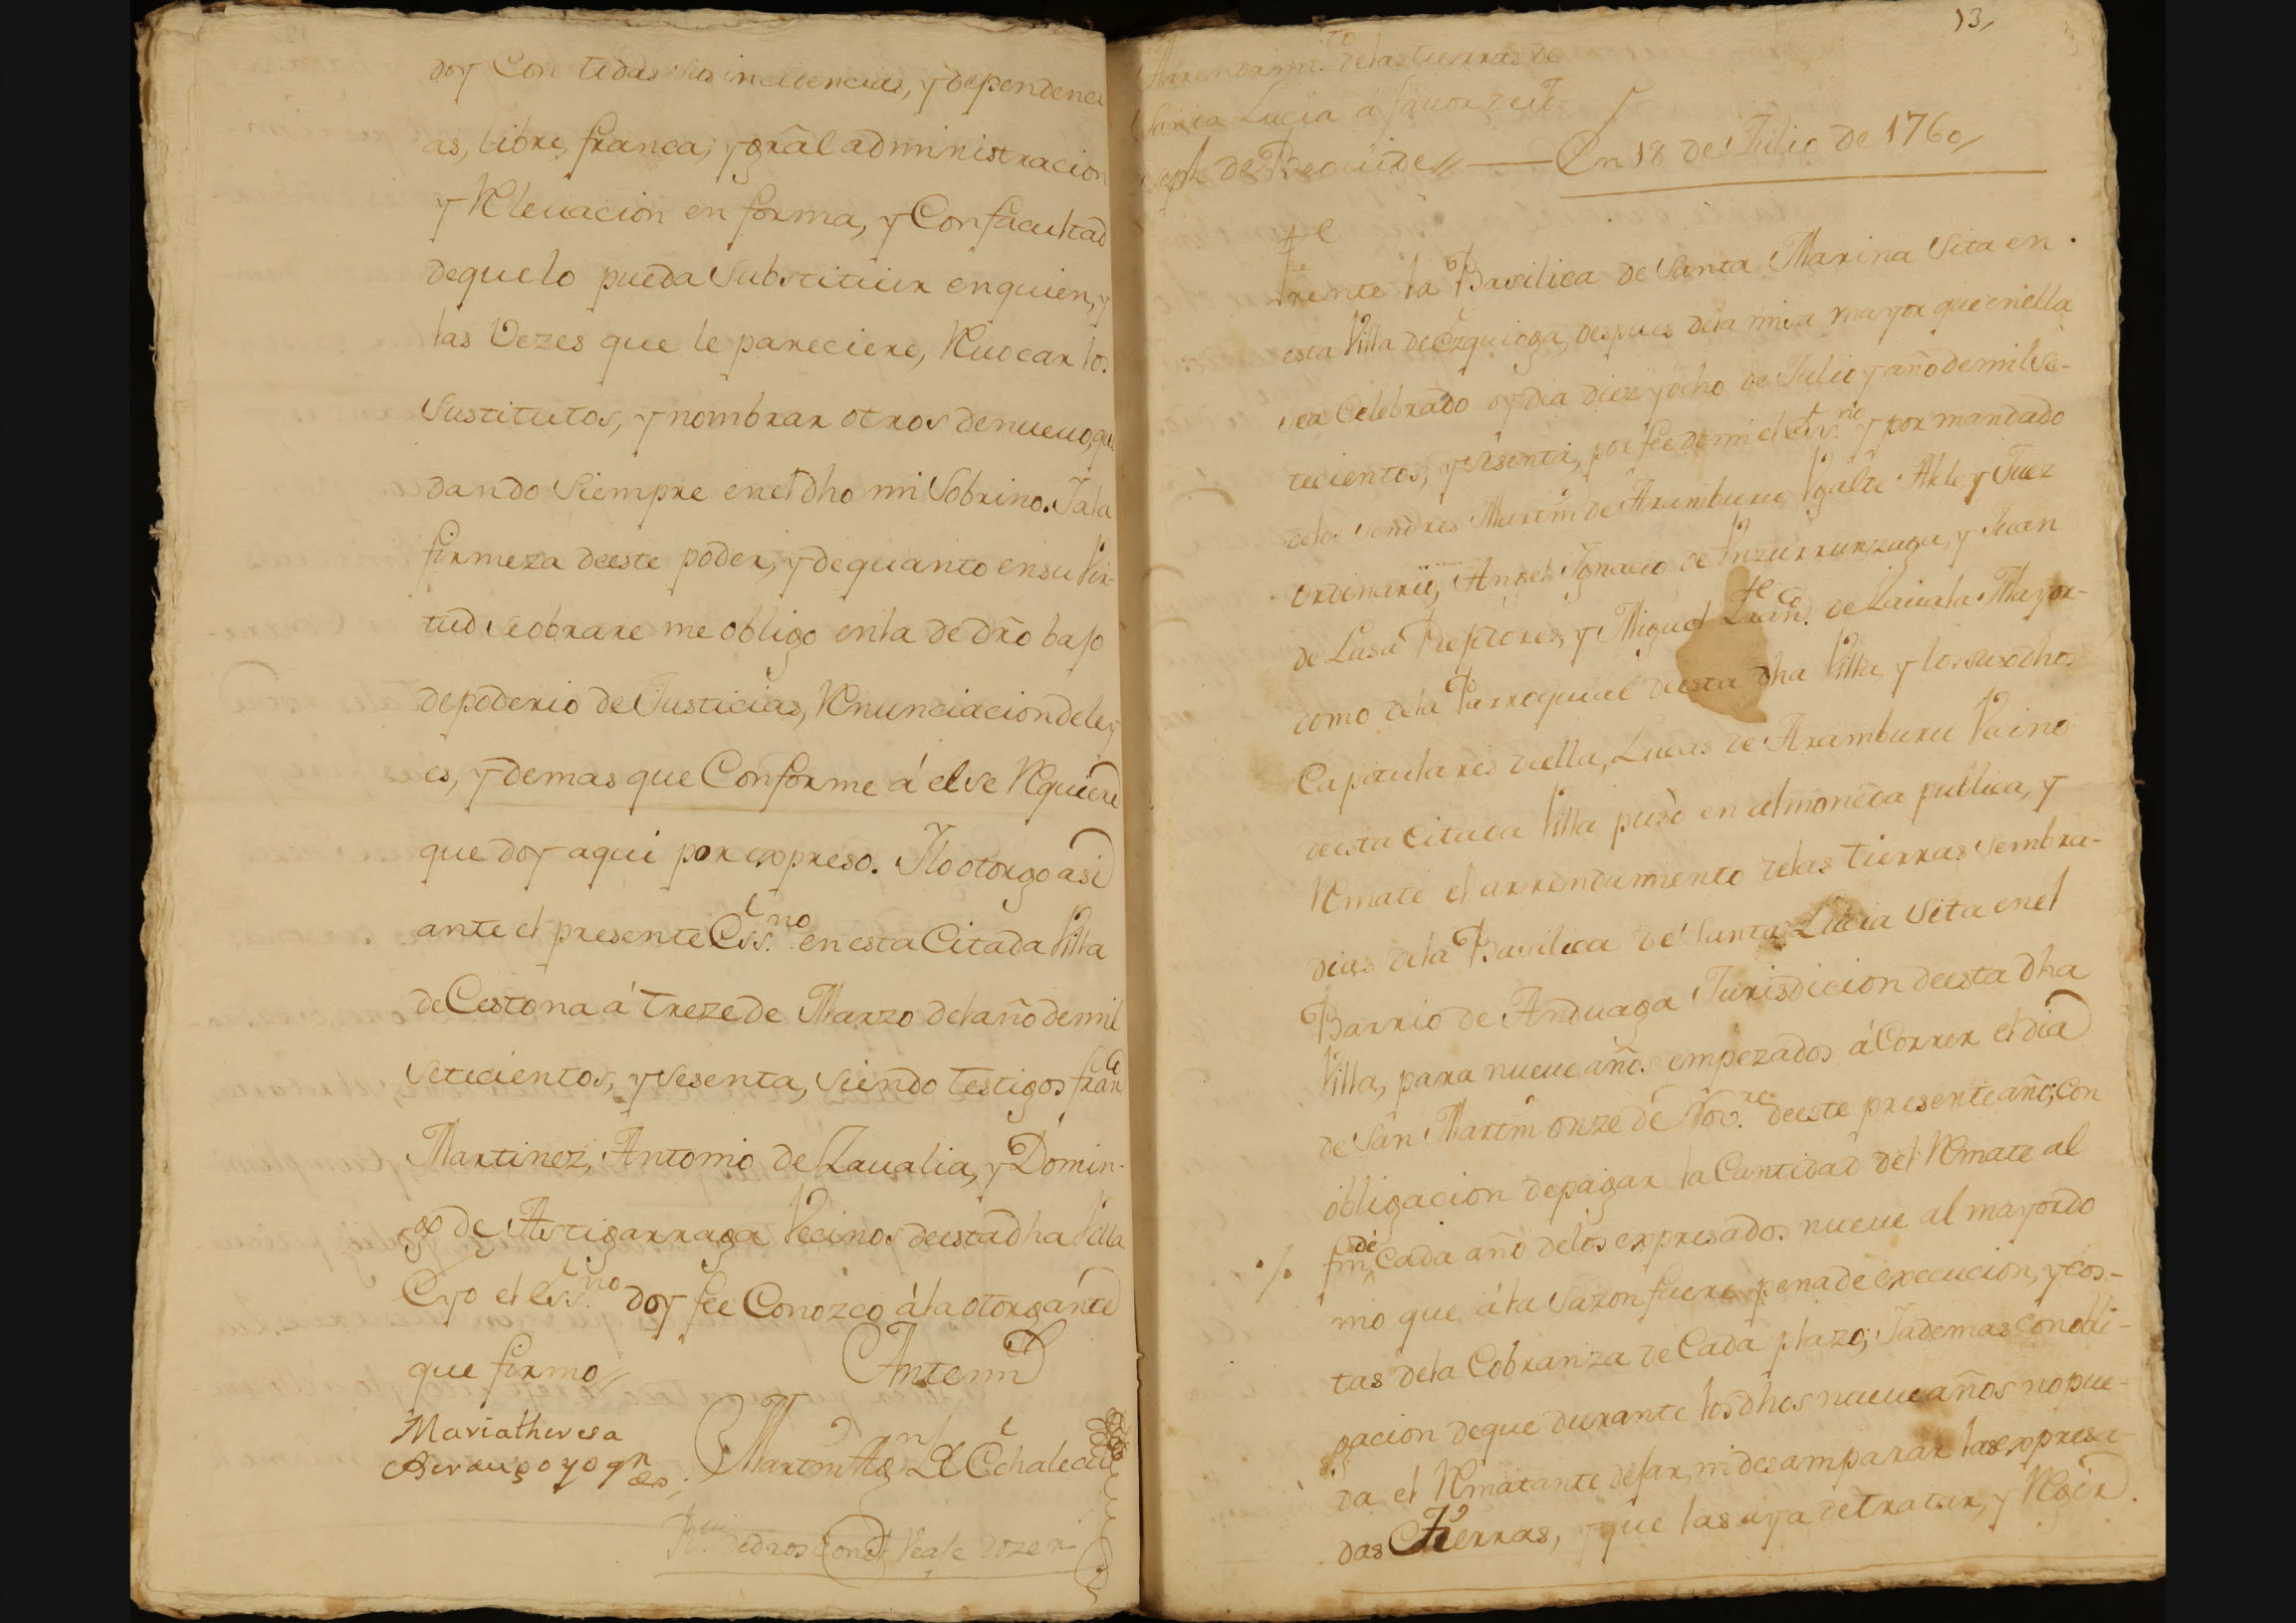 doy Con todas sus incidencias, y dependenci
as, libre, franca, y gral administracion
y Relevacion en forma, y Con facultad
de que lo pueda Substituir en quien, y
las Vezes que le pareciere, Revocar los
Sustitutos, y nombrar otros de nuevo, que
dando Siempre en el dho mi Sobrino. Y a la
firmeza de este poder, y de quanto en su Vir-
tud se obrare me obligo en la de dro bajo
de poderio de Justicias, Renunciacion de ley
es, y demas que Conforme á el se Requiere
que doy aqui por expreso. Y lo otorgo asi
ante el presente Essno. en esta Citada Villa
de Cestona á treze de Marzo del año de mil
setecientos, y sesenta, siendo testigos franco
Martinez, Antonio de Zavalia, y Domin-
go de Astigarraga Vecinos de esta dha Villa
E yo el Essno. doy fee Conozco á la otorgante
que firmo
Ante mi
Maria theresa
Martin Agn de Echalecu
13
Arrendamto. de las tierras de
Santa Lucia á favor de Jo-
seph de Reguide // En 18 de Julio de 1760
frente la Basilica de Santa Marina Sita en
esta Villa de Ezquioga, despues de la misa mayor que en ella
sea Celebrado oy dia diez y ocho de Julio y año de mil Se-
tecientos, y sesenta, por fee de mi el Essno. y por mandado
de los Señores Martin de Aramburu Ygalte Alle y Juez
ordinario, Angel Ygnacio de Ynzurrunzaga, y Juan
de Lasa Rejidores, y Miguel Franco. de Zavala Mayor-
domo de la Parroquial de esta dha Villa, y los susodhos
Capitulares de ella, Lucas de Aramburu Vecino
de esta Citada Villa puso en almoneda publica, y
Remate el arrendamiento de las tierras sembra-
dias de la Basilica de Santa Lucia Sita en el
Barrio de Anduaga Jurisdicion de esta dha
Villa, para nueve años empezados á Correr el dia
de San Martin onze de Novre. de este presente año; con
obligacion de pagar la Cantidad del Remate al
fin de Cada año de los expresados nueve al mayordo
mo que á la Sazon fuere pena de execucion, y cos-
tas de la Cobranza de Cada plazo; Y ademas con obli-
gacion de que durante los dhos nueve años no pue-
da el Rematante dejar, ni desamparar las expresa-
das tierras, y que las aya de tratar, y Regir